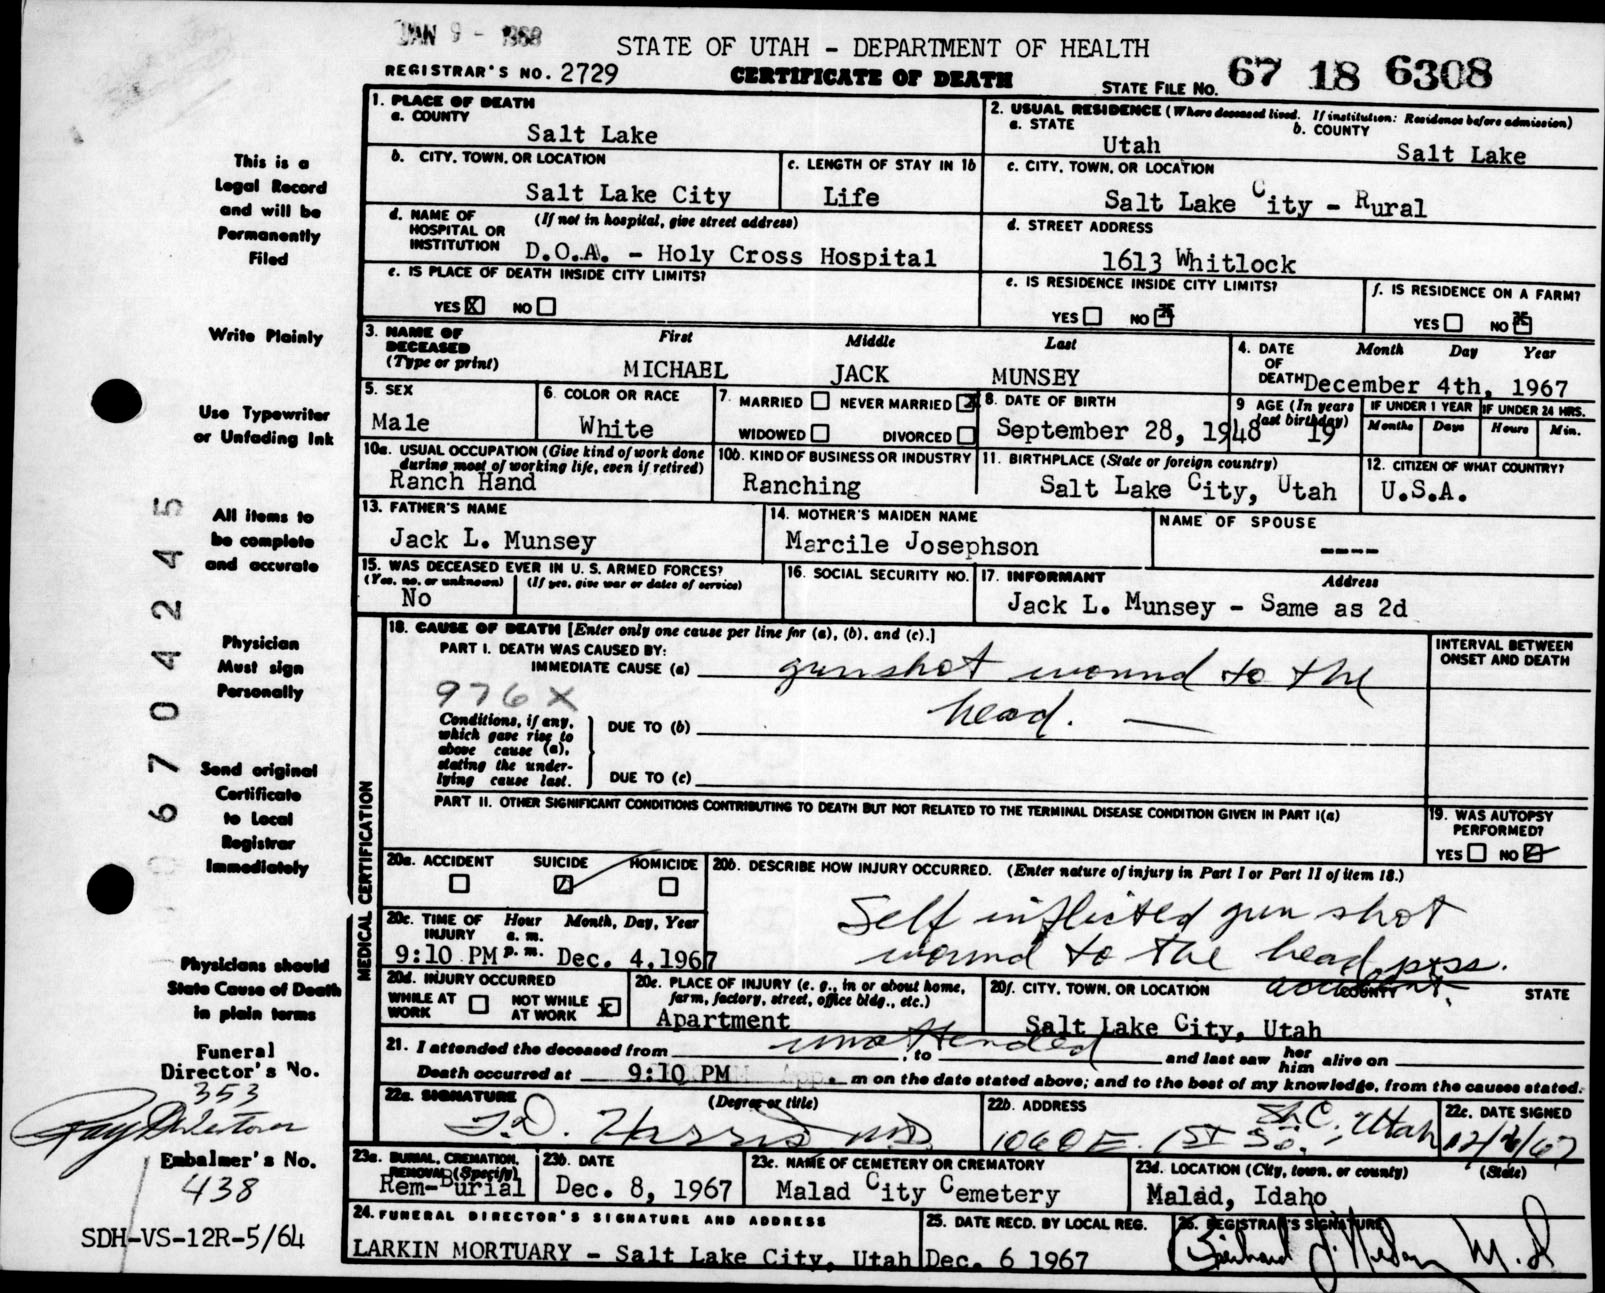 JAN 9 - 1968
STATE OF UTAH - DEPARTMENT OF HEALTH
REGISTRAR'S NO. 2729
CERTIFICATE OF DEATH
STATE FILE NO. 67 18 6308
1. PLACE OF DEATH
a. COUNTY
Salt Lake
2. USUAL RESIDENCE (Where deceased lived. If institution: Residence before admission)
a. STATE
Utah
b. COUNTY
Salt Lake
b. CITY, TOWN, OR LOCATION
Salt Lake City
c. LENGTH OF STAY IN 1b
Life
c. CITY, TOWN, OR LOCATION
Salt Lake City - Rural
d. NAME OF HOSPITAL OR INSTITUTION
(If not in hospital, give street address)
D.O.A. - Holy Cross Hospital
d. STREET ADDRESS
1613 Whitlock
e. IS PLACE OF DEATH INSIDE CITY LIMITS?
YES X NO
e. IS RESIDENCE INSIDE CITY LIMITS?
YES NO X
f. IS RESIDENCE ON A FARM?
YES NO X
3. NAME OF DECEASED (Type or print)
First Middle Last
MICHAEL JACK MUNSEY
4. DATE OF DEATH
Month Day Year
December 4th, 1967
5. SEX
Male
6. COLOR OR RACE
White
7. MARRIED NEVER MARRIED X
WIDOWED DIVORCED
8. DATE OF BIRTH
September 28, 1948
9 AGE (In years last birthday)
19
IF UNDER 1 YEAR
Months Days
IF UNDER 24 HRS.
Hours Min.
10a. USUAL OCCUPATION (Give kind of work done during most of working life, even if retired)
Ranch Hand
10b. KIND OF BUSINESS OR INDUSTRY
Ranching
11. BIRTHPLACE (State or foreign country)
Salt Lake City, Utah
12. CITIZEN OF WHAT COUNTRY?
U.S.A.
13. FATHER'S NAME
Jack L. Munsey
14. MOTHER'S MAIDEN NAME
Marcile Josephson
NAME OF SPOUSE
----
15. WAS DECEASED EVER IN U. S. ARMED FORCES?
(Yes, no, or unknown) (If yes, give war or dates of service)
No
16. SOCIAL SECURITY NO.
17. INFORMANT Address
Jack L. Munsey - Same as 2d
MEDICAL CERTIFICATION
18. CAUSE OF DEATH [Enter only one cause per line for (a), (b), and (c).]
PART I. DEATH WAS CAUSED BY:
IMMEDIATE CAUSE (a) gunshot wound to the
head. —
INTERVAL BETWEEN ONSET AND DEATH
976X
Conditions, if any, which gave rise to above cause (a), stating the underlying cause last.
DUE TO (b)
DUE TO (c)
PART II. OTHER SIGNIFICANT CONDITIONS CONTRIBUTING TO DEATH BUT NOT RELATED TO THE TERMINAL DISEASE CONDITION GIVEN IN PART I(a)
19. WAS AUTOPSY PERFORMED?
YES NO
20a. ACCIDENT SUICIDE HOMICIDE
20b. DESCRIBE HOW INJURY OCCURRED. (Enter nature of injury in Part I or Part II of item 18.)
Self inflicted gun shot
wound to the head poss.
accident.
20c. TIME OF INJURY Hour a. m. p. m. Month, Day, Year
9:10 PM Dec. 4, 1967
20d. INJURY OCCURRED
WHILE AT WORK NOT WHILE AT WORK X
20e. PLACE OF INJURY (e. g., in or about home, farm, factory, street, office bldg., etc.)
Apartment
20f. CITY, TOWN, OR LOCATION COUNTY STATE
Salt Lake City, Utah
21. I attended the deceased from unattended, to and last saw her him alive on
Death occurred at 9:10 PM m on the date stated above; and to the best of my knowledge, from the causes stated.
22a. SIGNATURE (Degree or title)
Harris MD
22b. ADDRESS
1060 E. 1st So. S.L.C., Utah
22c. DATE SIGNED
23a. BURIAL, CREMATION, REMOVAL (Specify)
Rem-Burial
23b. DATE
Dec. 8, 1967
23c. NAME OF CEMETERY OR CREMATORY
Malad City Cemetery
23d. LOCATION (City, town, or county) (State)
Malad, Idaho
24. FUNERAL DIRECTOR'S SIGNATURE AND ADDRESS
LARKIN MORTUARY - Salt Lake City, Utah
25. DATE RECD. BY LOCAL REG.
Dec. 6 1967
26. REGISTRAR'S SIGNATURE
M.D
This is a
Legal Record
and will be
Permanently
Filed
Write Plainly
Use Typewriter
or Unfading Ink
All items to
be complete
and accurate
Physician
Must sign
Personally
Send original
Certificate
to Local
Registrar
Immediately
Physicians should
State Cause of Death
in plain terms
Funeral
Director's No.
353
Embalmer's No.
438
SDH-VS-12R-5/64
6 7 0 4 2 4 5